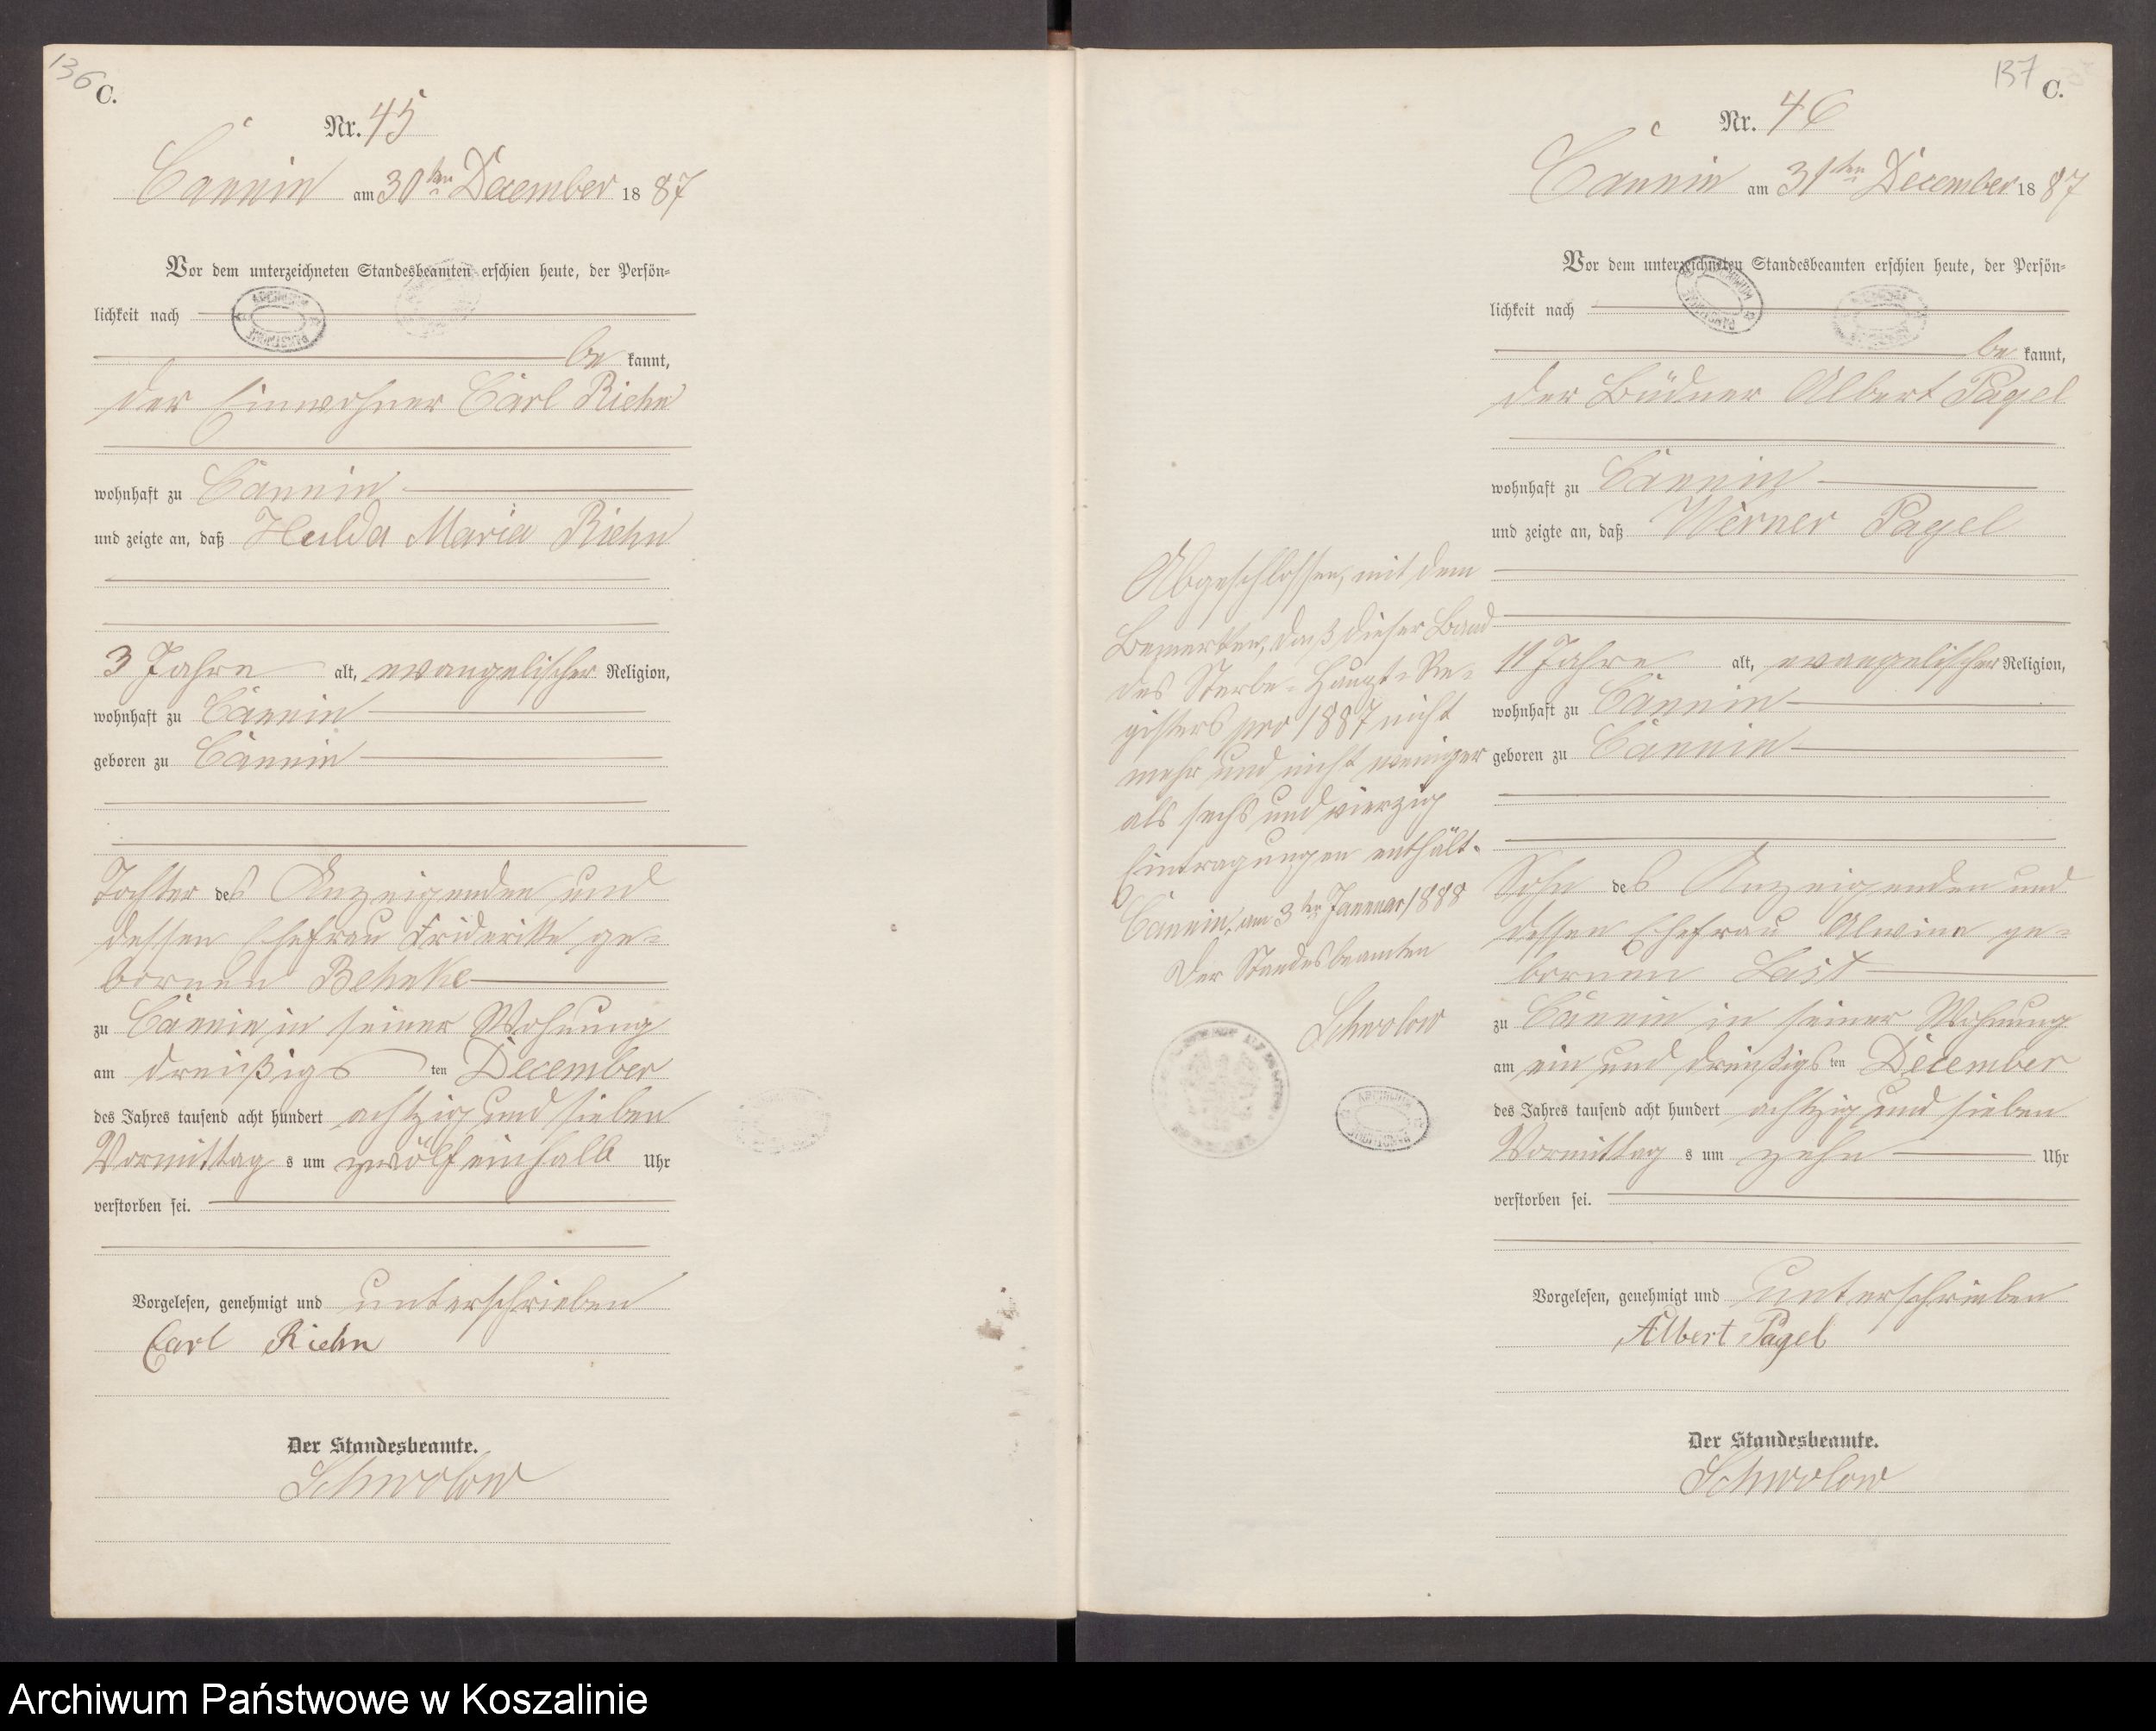 136
C.
Nr. 45
Cannin am 30ten December 1887
Vor dem unterzeichneten Standesbeamten erschien heute, der Persön-
lichkeit nach
be kannt,
der Einwohner Carl Riehn
wohnhaft zu Cannin
und zeigte an, daß Hulda Maria Riehn
3 Jahre alt, evangelischer Religion,
wohnhaft zu Cannin
geboren zu Cannin
Tochter des Anzeigenden und
dessen Ehefrau Friderike ge-
bornen Behnke
zu Cannin in seiner Wohnung
am dreißigs ten December
des Jahres tausend acht hundert achtzig und sieben
Vormittag s um zwölfeinhalb Uhr
verstorben sei.
Vorgelesen, genehmigt und unterschrieben
Carl Riehn
Der Standesbeamte.
Schwolow
137
C.
Nr. 46
Cannin am 31ten December 1887
Vor dem unterzeichneten Standesbeamten erschien heute, der Persön-
lichkeit nach
be kannt,
der Büdner Albert Pagel
wohnhaft zu Cannin
und zeigte an, daß Werner Pagel
11 Jahre alt, evangelischer Religion,
wohnhaft zu Cannin
geboren zu Cannin
Sohn des Anzeigenden und
dessen Ehefrau Alwine ge-
bornen Last
zu Cannin in seiner Wohnung
am ein und dreißigs ten December
des Jahres tausend acht hundert achtzig und sieben
Vormittag s um zehn Uhr
verstorben sei.
Vorgelesen, genehmigt und unterschrieben
Albert Pagel
Der Standesbeamte.
Schwolow
Abgeschlossen, mit dem
Bemerken, daß dieser Band
des Sterbe-Haupt-Re-
gisters pro 1887 nicht
mehr und nicht weniger
als sechs und vierzig
Eintragungen enthält.
Cannin, am 3ten Januar 1888
Der Standesbeamten
Schwolow
Archiwum Państwowe w Koszalinie